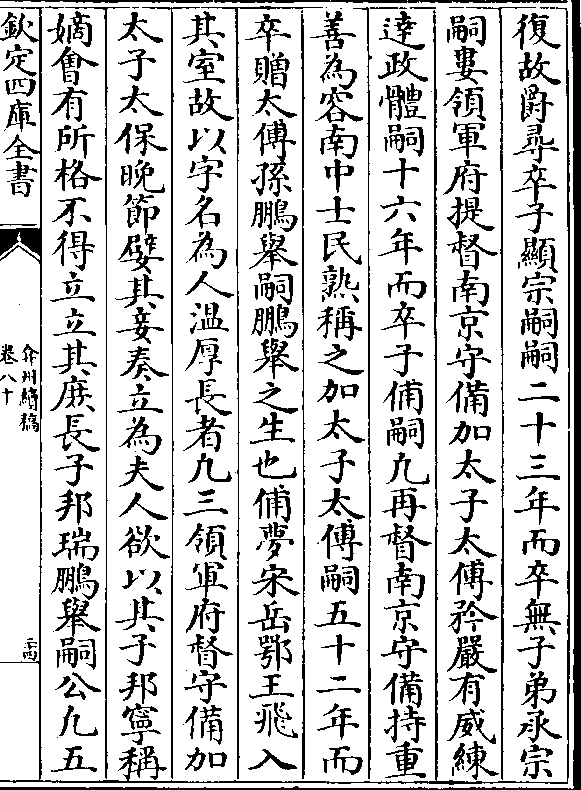 復故爵尋卒子顯宗嗣嗣二十三年而卒無子弟承宗
嗣婁領軍府提督南京守備加太子太傅矜嚴有威練
達政體嗣十六年而卒子俌嗣凡再督南京守備持重
善為容南中士民熟稱之加太子太傅嗣五十二年而
卒贈太傅孫鵬舉嗣鵬舉之生也俌夢宋岳鄂王飛入
其室故以字名為人溫厚長者凡三領軍府督守備加
太子太保晚節嬖其妾奏立為夫人欲以其子邦寧稱
嫡會有所格不得立立其庶長子邦瑞鵬舉嗣公凡五
欽定四庫全書
弇州續稿
卷八十
二四